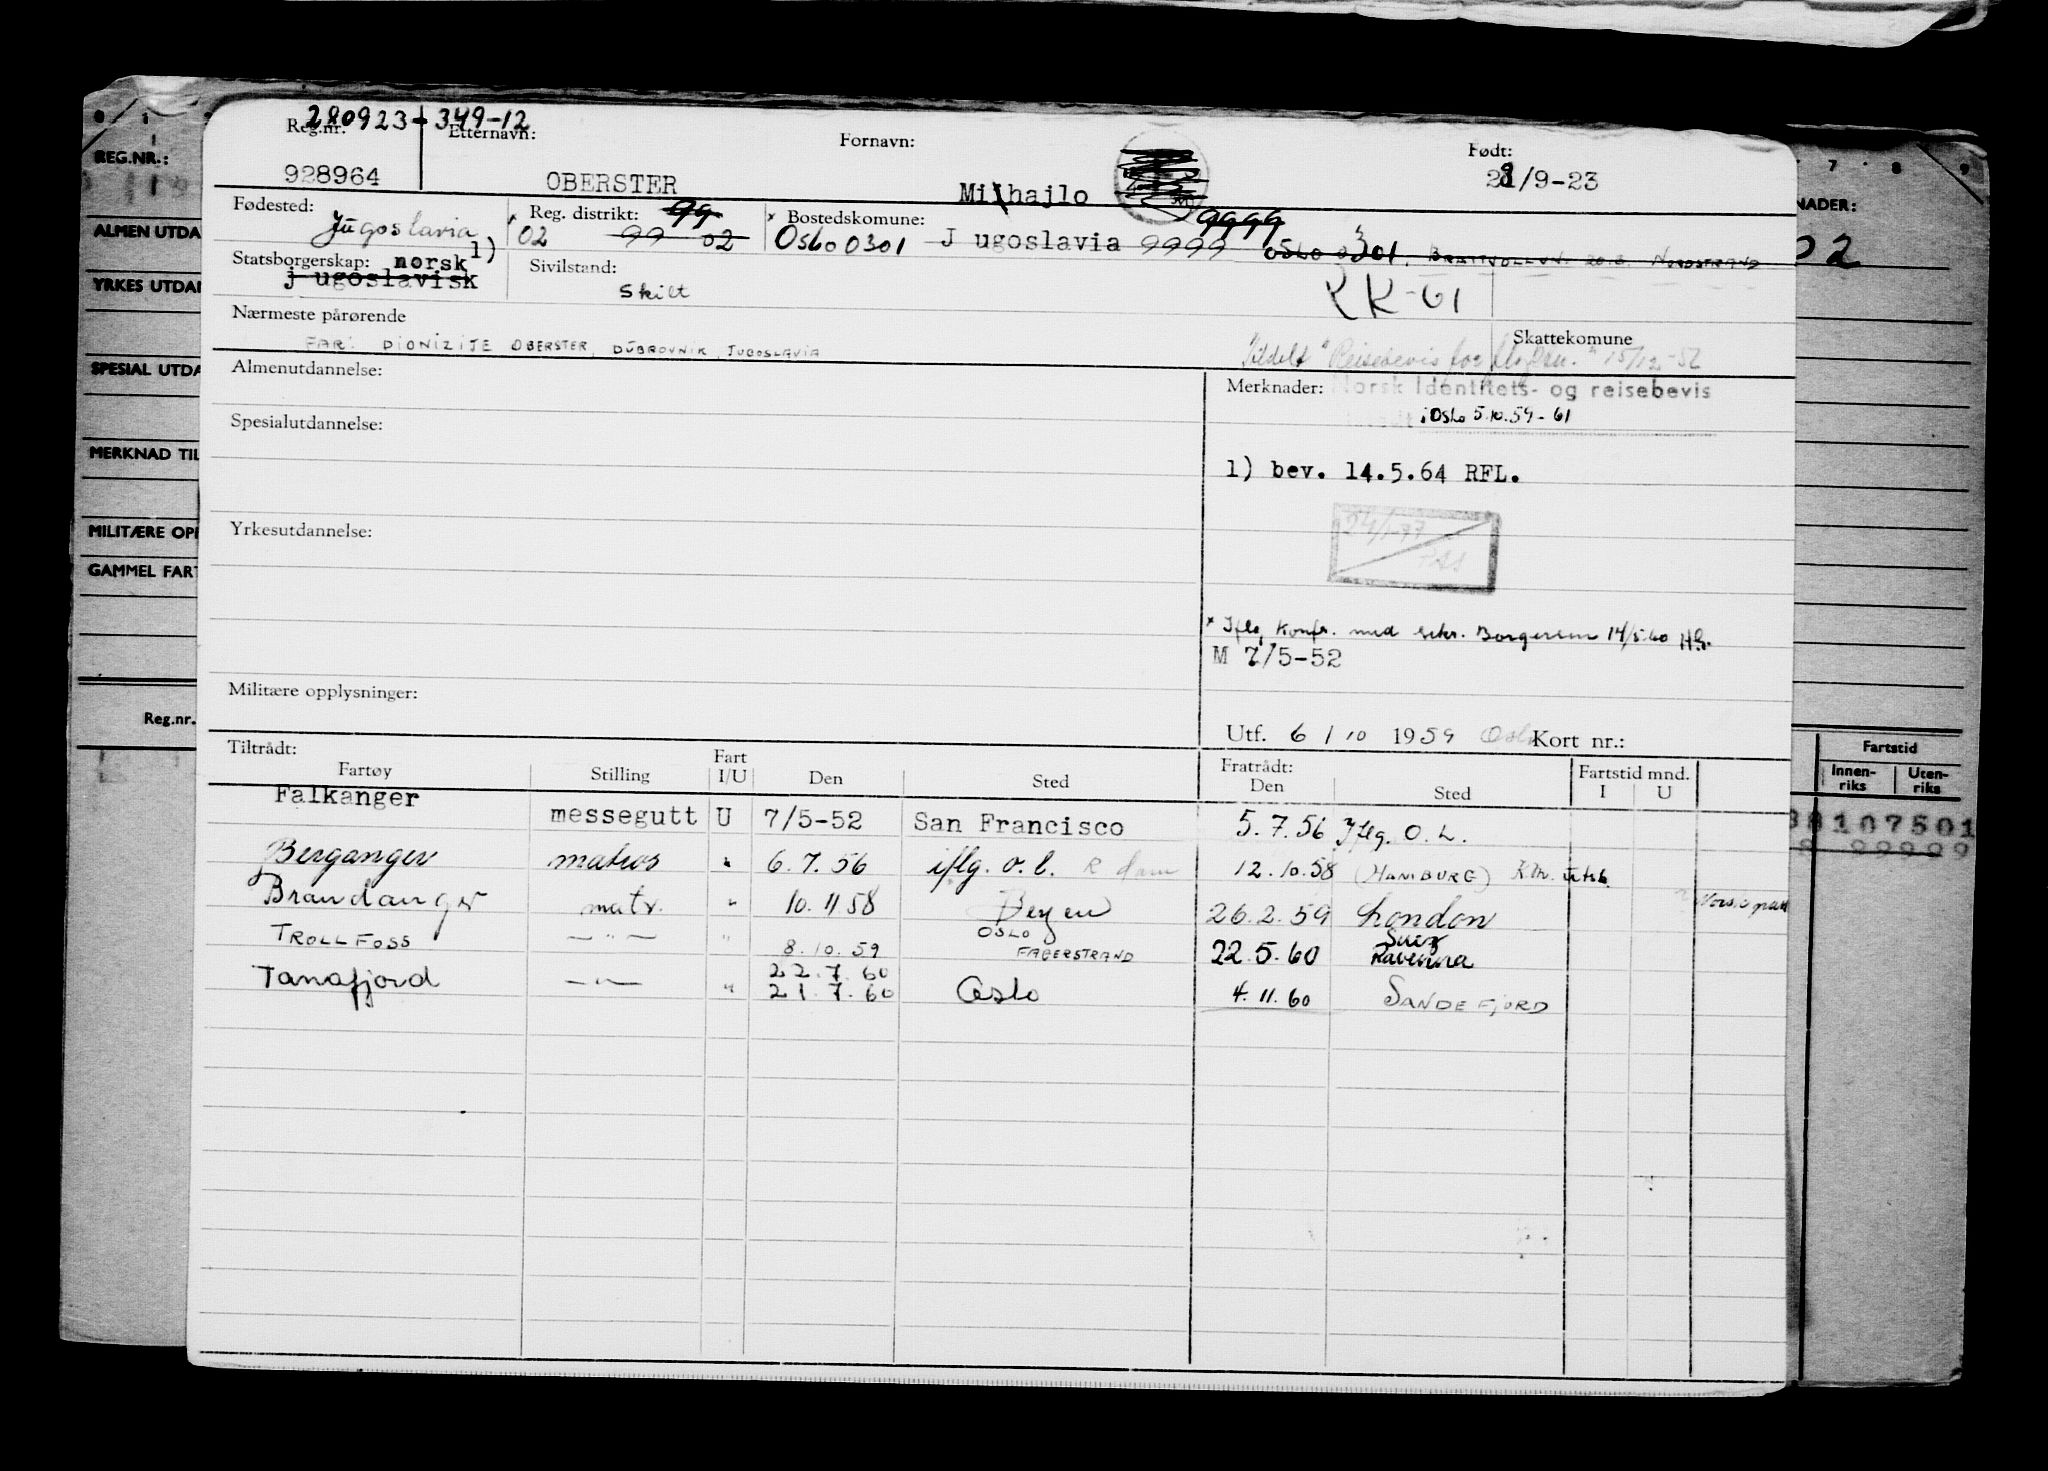 280923 + 349-12
Reg.nr. Etternavn: Fornavn: Født:
928964 OBERSTER Mihajlo 28/9-23
Fødested: Jugoslavia Reg. distrikt: 99 Bostedskomune: 9999
02 99 02 Oslo 0301 Jugoslavia 9999 OSLO 0301, NORDSTRAND
Statsborgerskap: norsk 1) Sivilstand:
jugoslavisk skilt RK-61
Nærmeste pårørende Skattekomune
FAR: DIONIZIJE OBERSTER, DUBROVNIK, JUGOSLAVIA
Tildelt "Reisebevis for 15/12-52
Almenutdannelse: Merknader: Norsk Identitets- og reisebevis
i Oslo 5.10.59-61
Spesialutdannelse:
1) bev. 14.5.64 RFL.
24/1-77
PAS
Yrkesutdannelse:
* Iflg. konfr. med sekr. Borgersen 14/5.60 HB.
M 7/5-52
Militære opplysninger:
Utf. 6/10 1959 Oslo Kort nr.:
Tiltrådt: Fratrådt: Fartstid mnd.
Fartøy Stilling Fart I/U Den Sted Den Sted I U
Falkanger messegutt U 7/5-52 San Francisco 5.7.56 Iflg. O.L.
Beranger matros " 6.7.56 iflg. o.l. R dam 12.10.58 (HAMBURG)
Brandanger matr. " 10.11 58 Bergen 26.2.59 London
TROLLFOSS — " — " 8.10.59 OSLO FAGERSTRAND 22.5.60 Suez Ravenna
22.7.60
Tanafjord — " — " 21.7.60 Oslo 4.11.60 SANDEFJORD
REG.NR.:
ALMEN UTDA
YRKES UTDA
SPESIAL UTDA
MERKNAD TIL
MILITÆRE OPP
GAMMEL FART
Reg.nr.
7 8 9
NADER:
02
Fartstid
Innen-riks Uten-riks
38107501